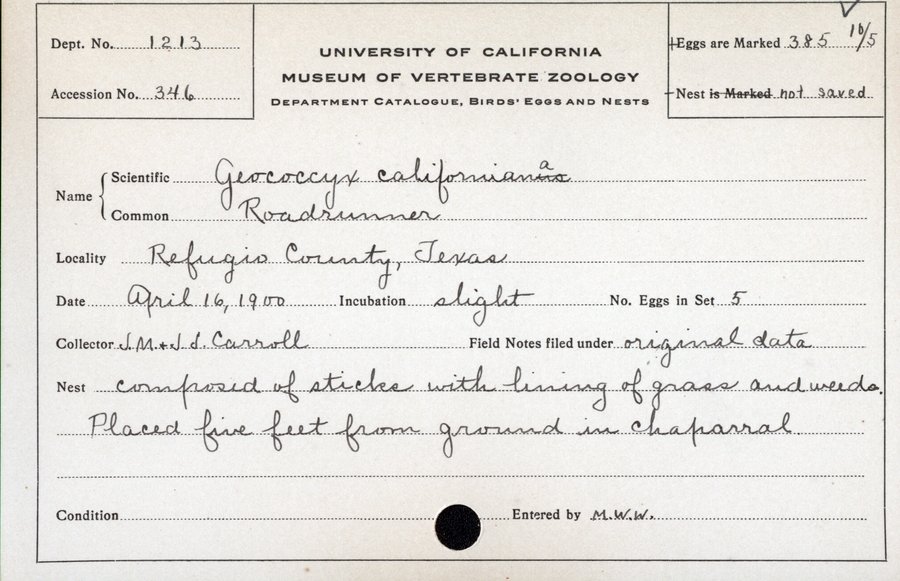 Dept. No. 1213
Accession No. 346
UNIVERSITY OF CALIFORNIA
MUSEUM OF VERTEBRATE ZOOLOGY
DEPARTMENT CATALOGUE, BIRDS' EGGS AND NESTS
Eggs are Marked 385 10/5
Nest is Marked not saved
Name Scientific Geococcyx californianus a
Common Roadrunner
Locality Refugio County, Texas
Date April 16, 1900 Incubation slight No. Eggs in Set 5
Collector J.M. + J.J. Carroll Field Notes filed under original data
Nest composed of sticks with lining of grass and weeds.
Placed five feet from ground in chaparral.
Condition Entered by M.W.W.